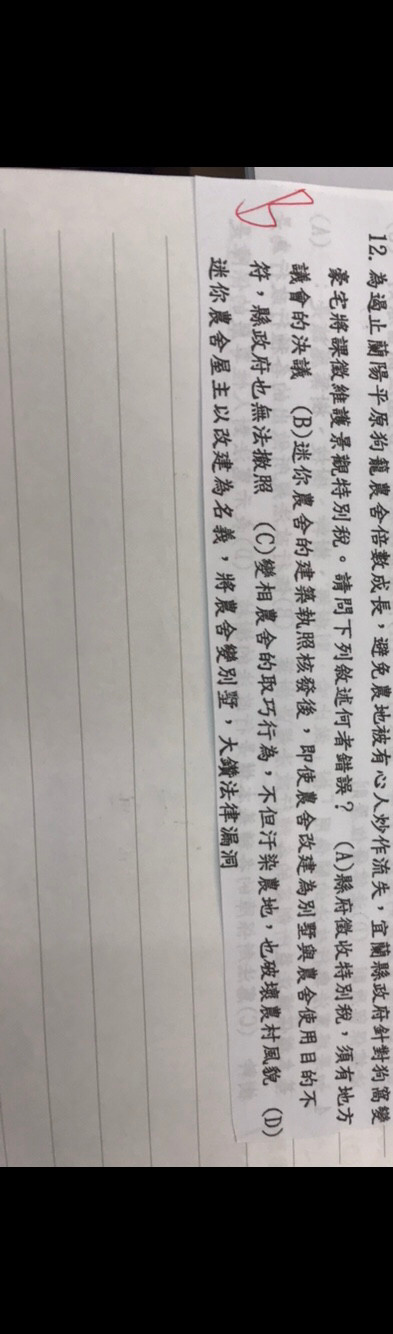 12. 為遏止蘭陽平原狗籠農舍倍數成長，避免農地被有心人炒作流失，宜蘭縣政府針對狗窩變
豪宅將課徵維護景觀特別稅。請問下列敘述何者錯誤？ (A)縣府徵收特別稅，須有地方
議會的決議 (B)迷你農舍的建築執照核發後，即使農舍改建為別墅與農舍使用目的不
符，縣政府也無法撤照 (C)變相農舍的取巧行為，不但汙染農地，也破壞農村風貌 (D)
迷你農舍屋主以改建為名義，將農舍變別墅，大鑽法律漏洞
B